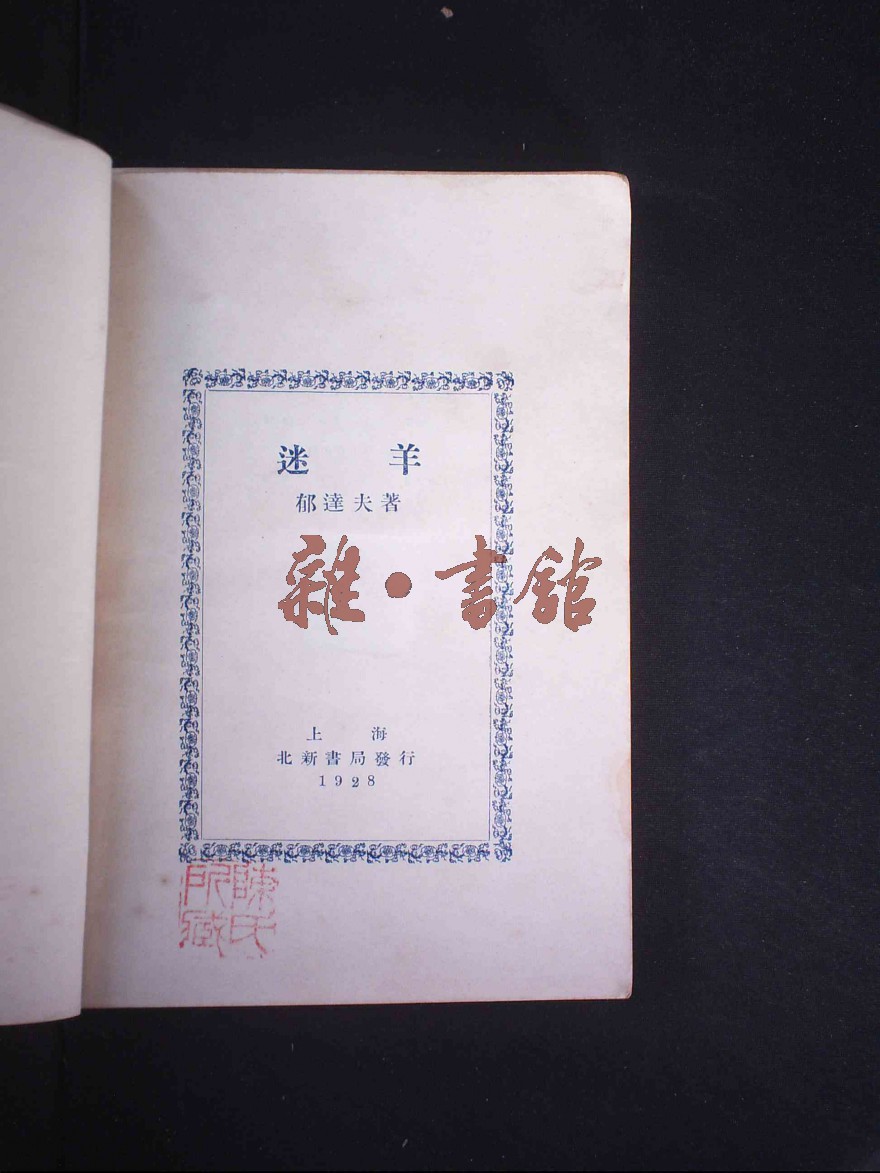 迷羊
郁達夫著
雜·書舘
上海
北新書局發行
1928
陳氏
所藏